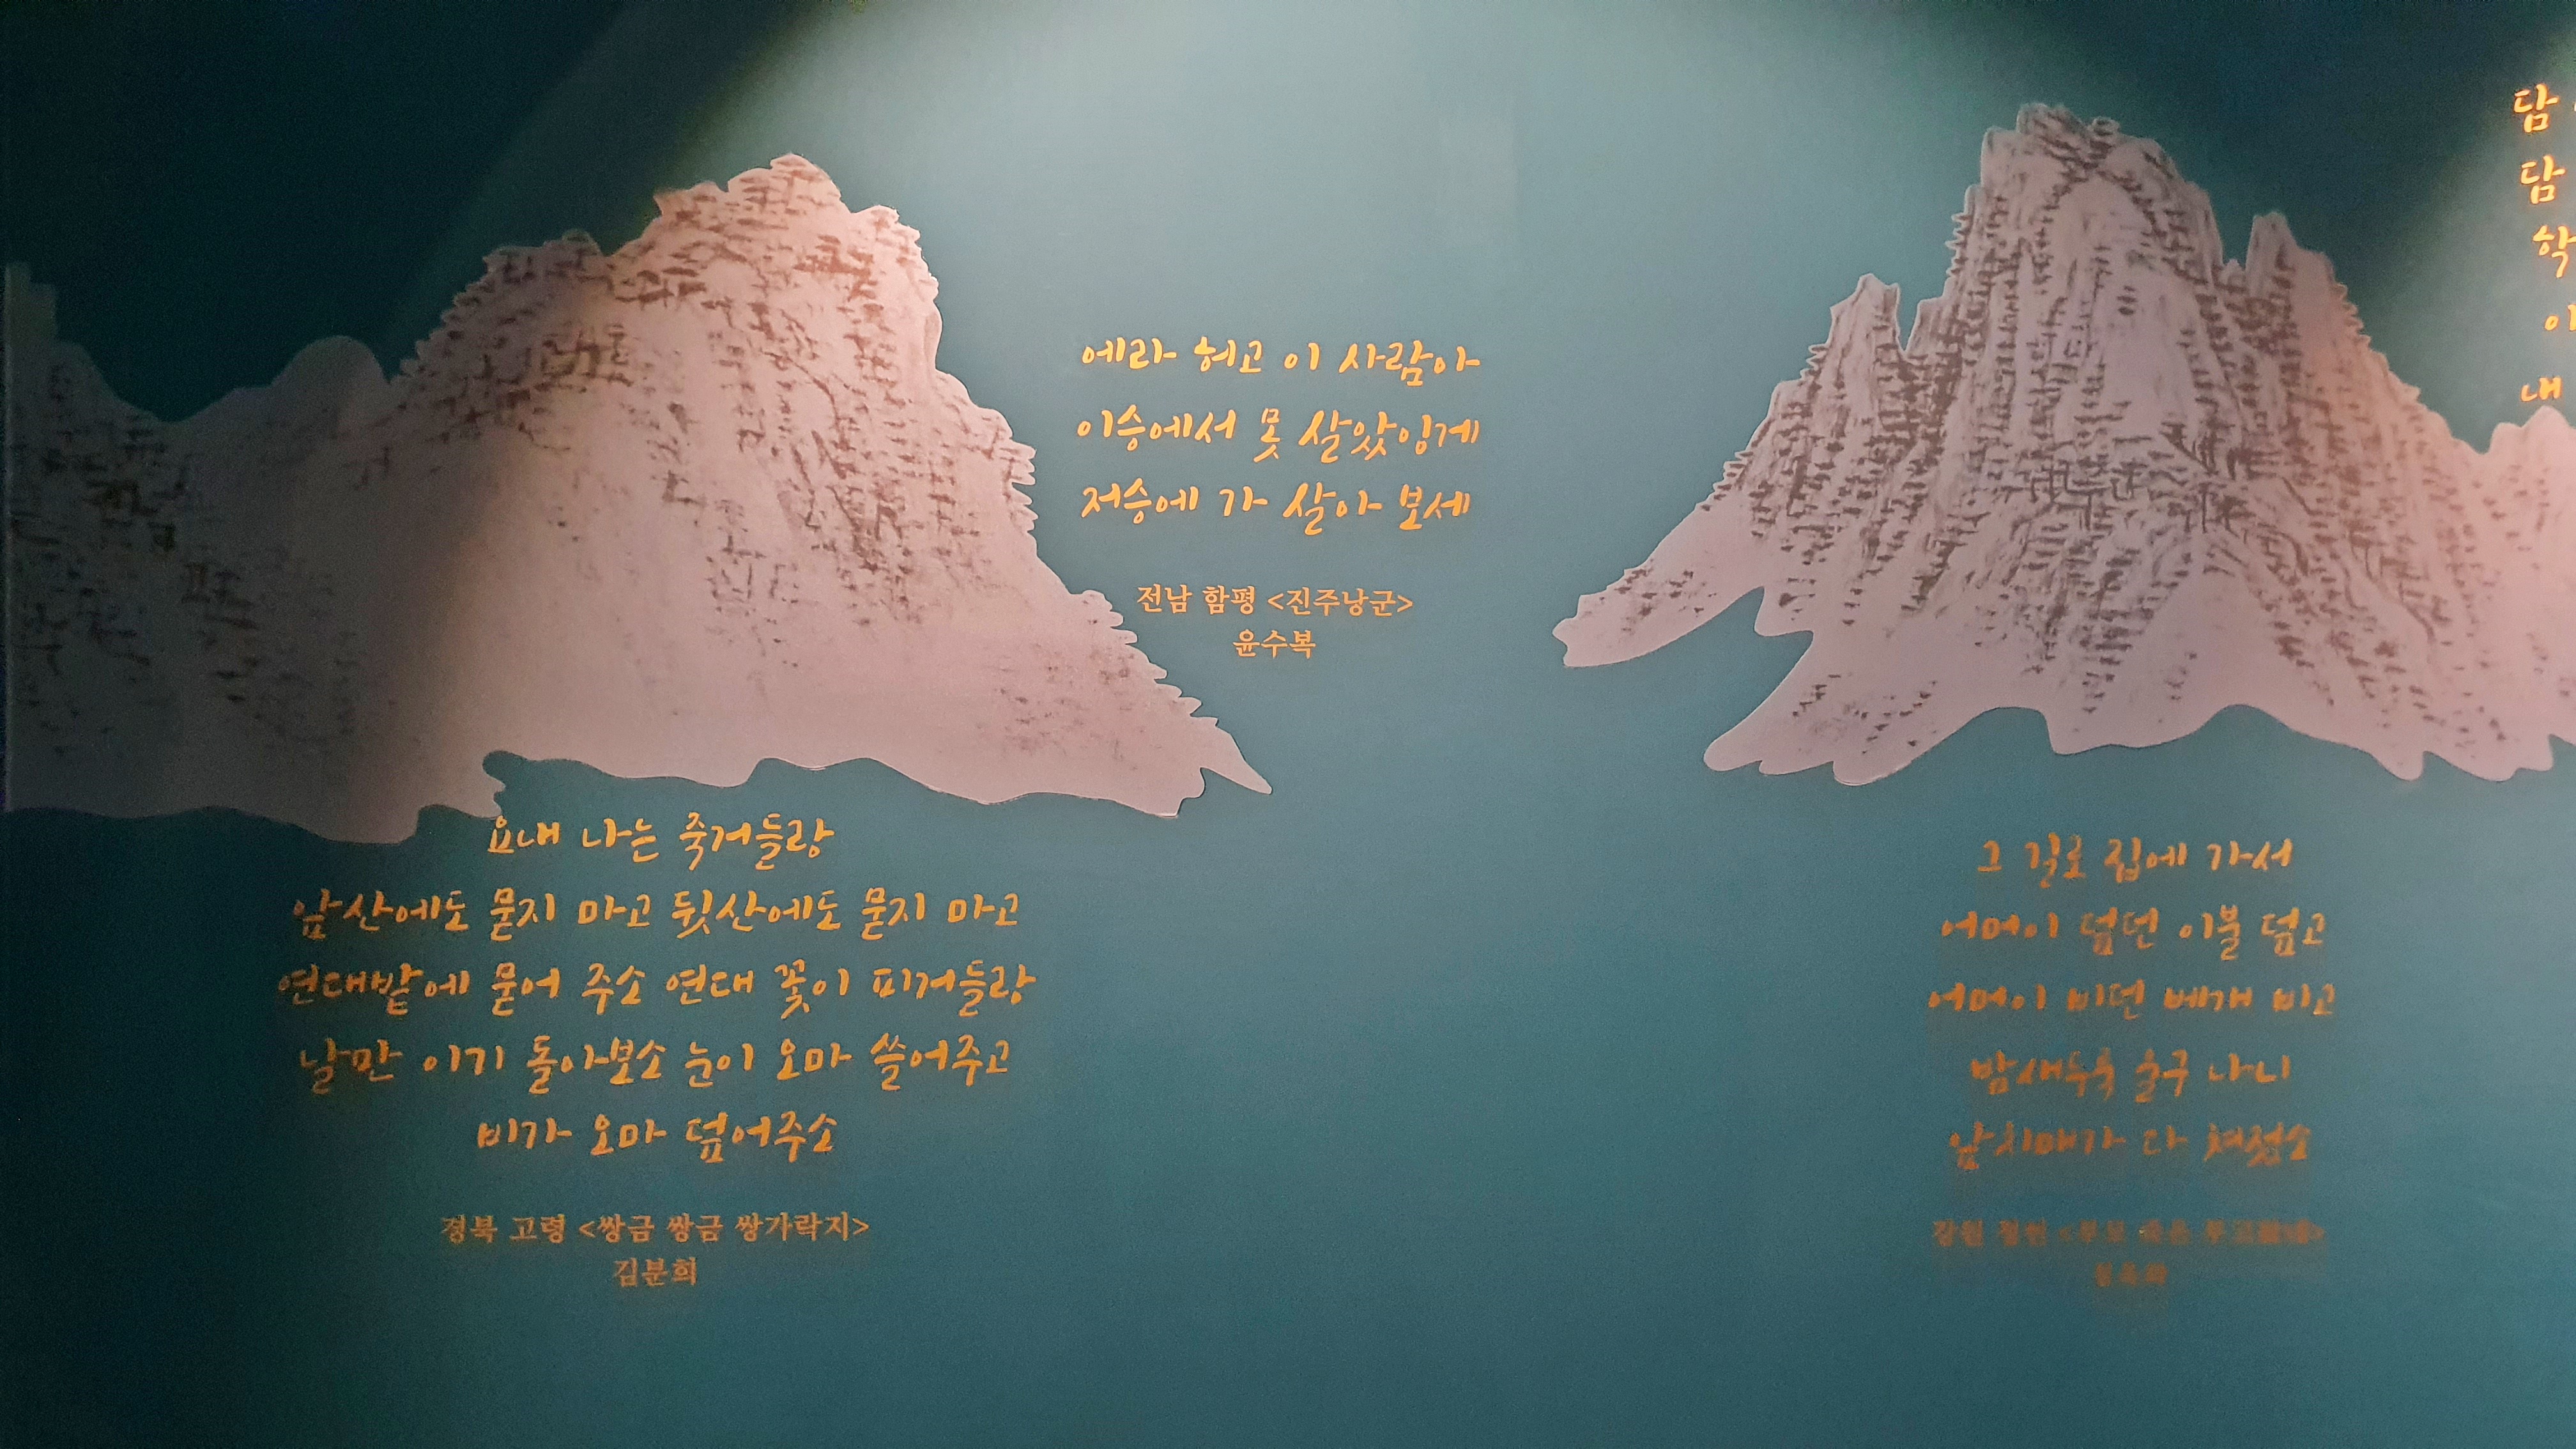 에라 허고 이 사람아
이승에서 못 살았잉게
저승에 가 살아 보세
전남 함평 <진주낭군>
윤수복
요내 나는 죽거들랑
앞산에도 묻지 마고 뒷산에도 묻지 마고
연대밭에 묻어 주소 연대 꽃이 피거들랑
날만 이기 돌아보소 눈이 오마 쓸어주고
비가 오마 덮어주소
경북 고령 <쌍금 쌍금 쌍가락지>
김분희
그 길로 집에 가서
어머이 덮던 이불 덮고
어머이 비던 베개 비고
밤새두룩 울구 나니
앞치매가 다 쳐젔소
강원
담
담
학
이
내